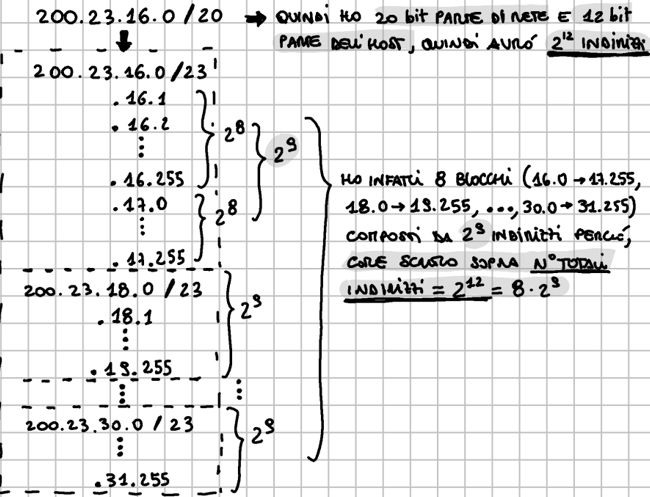 200.23.16.0 / 20 → QUINDI HO 20 bit PARTE DI RETE E 12 bit
PARTE DELL'HOST, QUINDI AVRÓ 2¹² INDIRIZZI
200.23.16.0 / 23
.16.1
.16.2
⋮
.16.255
2⁸
.17.0
⋮
.17.255
2⁸
2⁹
200.23.18.0 / 23
.18.1
⋮
.19.255
2⁹
⋮
⋮
200.23.30.0 / 23
⋮
.31.255
2⁹
HO INFATTI 8 BLOCCHI (16.0 → 17.255,
18.0 → 19.255, ..., 30.0 → 31.255)
COMPOSTI DA 2⁹ INDIRIZZI PERCIÓ,
COME SCRITTO SOPRA N° TOTALI
INDIRIZZI = 2¹² = 8 · 2⁹